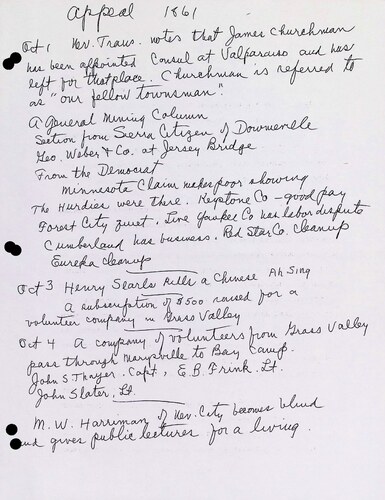 Appeal 1861
Oct 1 Nev. Trans. notes that James Churchman
has been appointed Consul at Valparaiso and has
left for that place. Churchman is referred to
as "our fellow townsman".
A General Mining Column
Section from Sierra Citizen of Downieville
Geo. Weber & Co. at Jersey Bridge
From the Democrat
Minnesota Claim makes poor showing
The Hurdies were there. Keystone Co - good pay
Forest City quiet. Live Yankee Co has labor dispute
Cumberland has business. Red Star Co. cleanup
Eureka cleanup
Oct 3 Henry Searls kills a Chinese Ah Sing
A subscription of $500 raised for a
volunteer company in Grass Valley
Oct 4 A company of volunteers from Grass Valley
pass through Marysville to Bay Camp.
John S Thayer. Capt, E.B Frink. Lt.
John Slater. Lt.
M. W. Harriman of Nev. City becomes blind
and gives public lectures for a living.